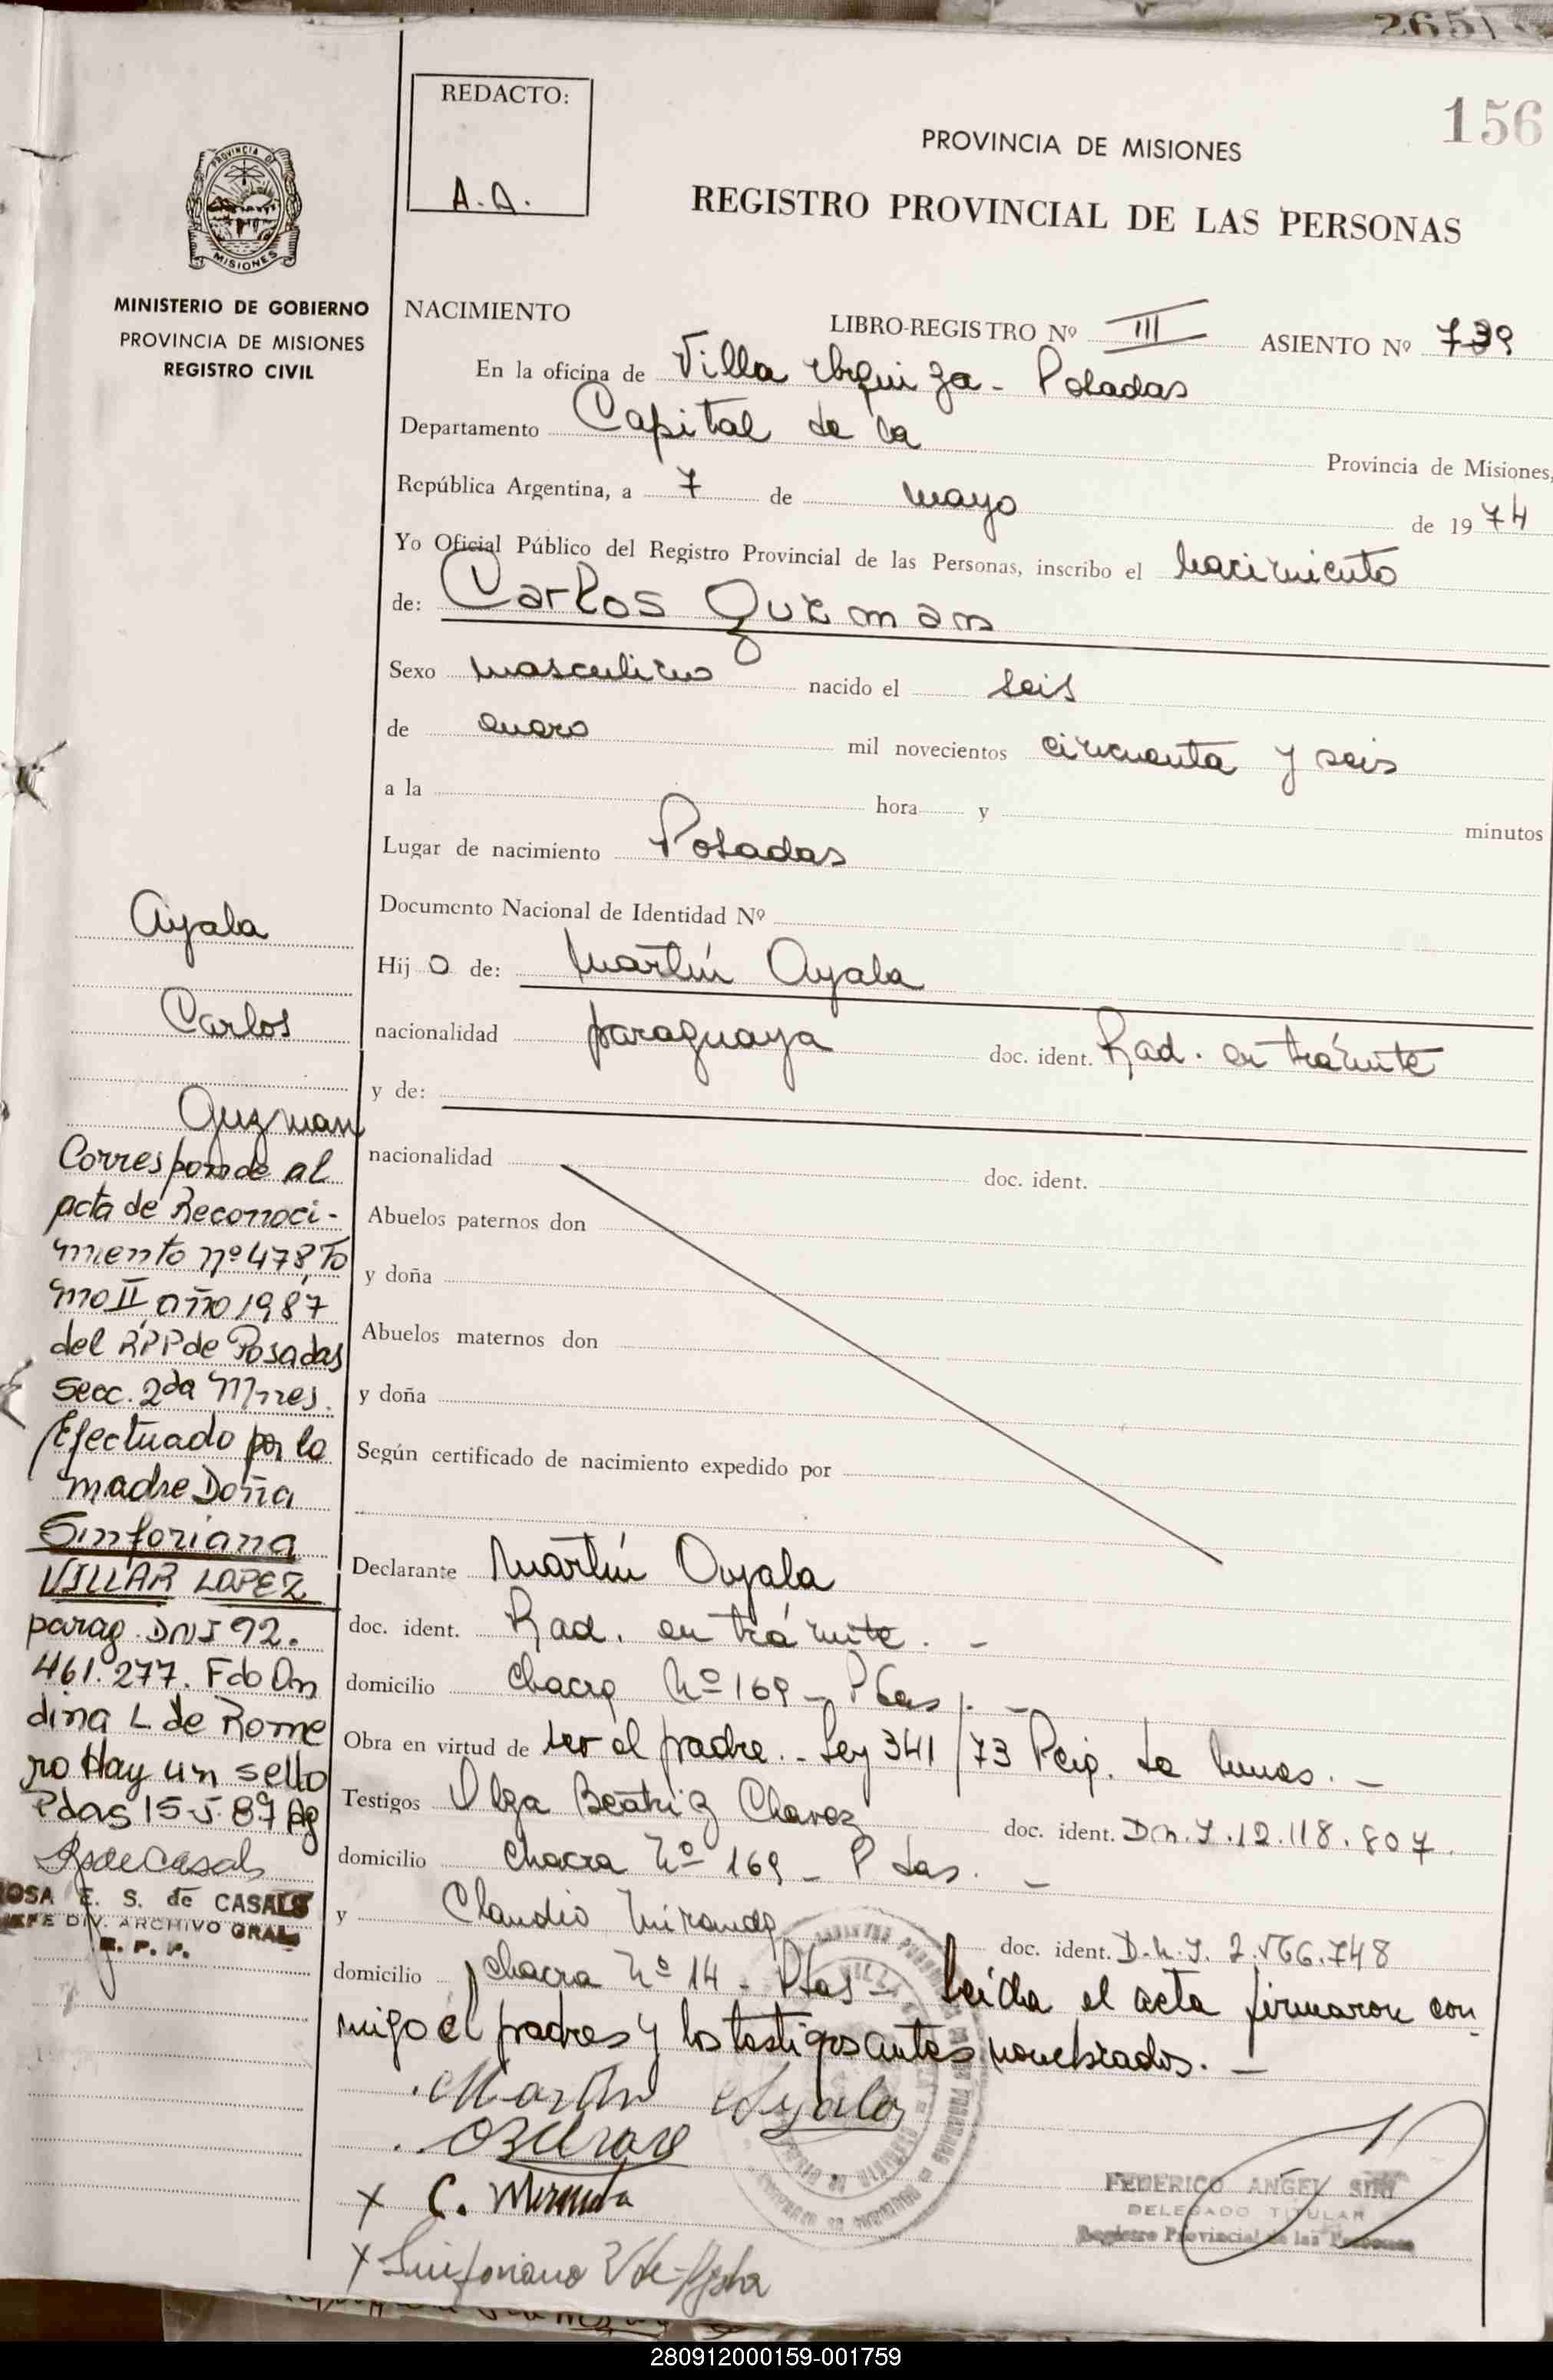 2651
156
REDACTO:
A.A.
PROVINCIA DE MISIONES
REGISTRO PROVINCIAL DE LAS PERSONAS
PROVINCIA DE
MISIONES
MINISTERIO DE GOBIERNO
PROVINCIA DE MISIONES
REGISTRO CIVIL
NACIMIENTO
LIBRO-REGISTRO Nº III ASIENTO Nº 739
En la oficina de Villa Urquiza - Posadas
Departamento Capital de la Provincia de Misiones,
República Argentina, a 7 de mayo de 1974
Yo Oficial Público del Registro Provincial de las Personas, inscribo el nacimiento
de: Carlos Guzman
Sexo masculino nacido el seis
de enero mil novecientos cincuenta y seis
a la hora y minutos
Lugar de nacimiento Posadas
Documento Nacional de Identidad Nº
Hijo de: Martín Ayala
nacionalidad paraguaya doc. ident. Rad. en trámite
y de:
nacionalidad doc. ident.
Abuelos paternos don
y doña
Abuelos maternos don
y doña
Según certificado de nacimiento expedido por
Declarante Martín Ayala
doc. ident. Rad. en trámite. -
domicilio Chacra Nº 169 - Pdas. -
Obra en virtud de ser el padre. - Ley 341/73 Reig. de Anses. -
Testigos Olga Beatriz Chavez doc. ident. D.N.I. 12.118.807.
domicilio Chacra Nº 169 - Pdas. -
y Claudio Miranda doc. ident. D.N.I. 2.566.748
domicilio Chacra Nº 14 - Pdas - Leída el acta firmaron con
migo el padres y los testigos antes nombrados. -
Martin Ayala
C. Miranda
FEDERICO ANGEL
DELEGADO TITULAR
Registro Provincial de las Personas
Ayala
Carlos
Guzman
Corresponde al
acta de Reconoci-
miento nº 478, To
mo II, año 1987
del R.P.P de Posadas
secc. 2da Mnes.
Efectuado por la
madre Doña
Sinforiana
VILLAR LOPEZ
parag. DNI 92.
461.277. Fdo On
dina L de Rome
ro Hay un sello
Pdas 15-5-87
ROSA E. S. de CASALS
JEFE DIV. ARCHIVO GRAL
R. P. P.
280912000159-001759